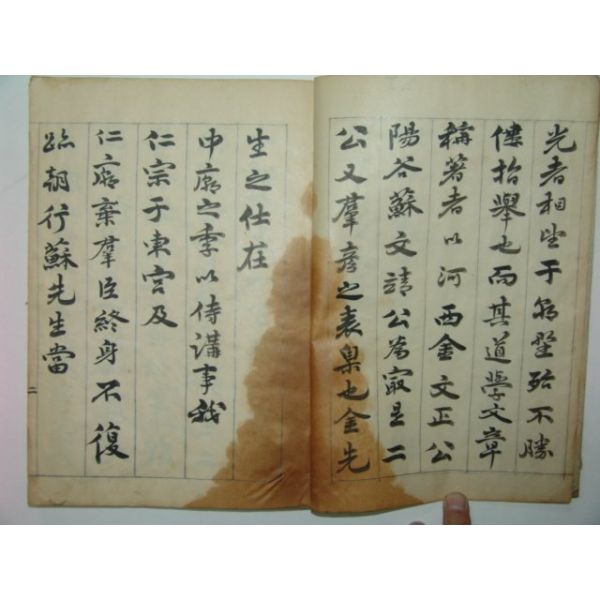 光者相望于朝野殆不勝
僂指擧也而其道學文章
稱著者以河西金文正公
陽谷蘇文靖公爲最是二
公又羣彦之表臬也金先
生之仕在
中廟之季以侍講事我
仁宗于東宮及
仁廟棄羣臣終身不復
跡朝行蘇先生當
二